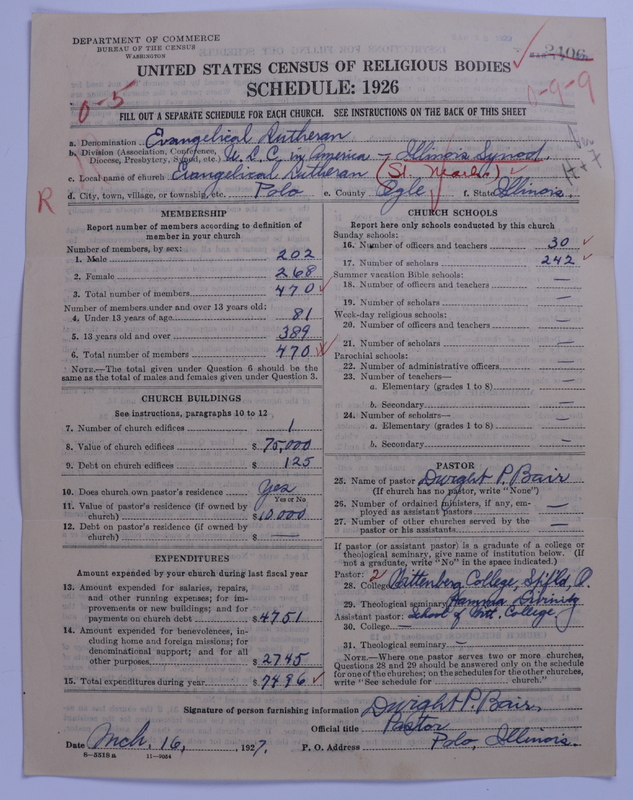 DEPARTMENT OF COMMERCE
BUREAU OF THE CENSUS
WASHINGTON
2406
UNITED STATES CENSUS OF RELIGIOUS BODIES
SCHEDULE: 1926
0-5
0-9-9
FILL OUT A SEPARATE SCHEDULE FOR EACH CHURCH. SEE INSTRUCTIONS ON THE BACK OF THIS SHEET
a. Denomination Evangelical Lutheran
b. Division (Association, Conference, Diocese, Presbytery, Synod, etc.) U. L. C. in America - Illinois Synod.
c. Local name of church Evangelical Lutheran (St. Mark's)
d. City, town, village, or township, etc. Polo e. County Ogle f. State Illinois.
R
MEMBERSHIP
Report number of members according to definition of
member in your church
Number of members, by sex:
1. Male 202
2. Female 268
3. Total number of members 470
Number of members under and over 13 years old:
4. Under 13 years of age 81
5. 13 years old and over 389
6. Total number of members 470
NOTE.—The total given under Question 6 should be
same as the total of males and females given under Question 3.
CHURCH BUILDINGS
See instructions, paragraphs 10 to 12
7. Number of church edifices 1
8. Value of church edifices $ 75,000
9. Debt on church edifices $ 125
10. Does church own pastor's residence Yes
Yes or No
11. Value of pastor's residence (if owned by
church) $ 10,000
12. Debt on pastor's residence (if owned by
church) $ —
EXPENDITURES
Amount expended by your church during last fiscal year
13. Amount expended for salaries, repairs,
and other running expenses; for im-
provements or new buildings; and for
payments on church debt $ 4751
14. Amount expended for benevolences, in-
cluding home and foreign missions; for
denominational support; and for all
other purposes $ 2745
15. Total expenditures during year $ 7496
CHURCH SCHOOLS
Report here only schools conducted by this church
Sunday schools:
16. Number of officers and teachers 30
17. Number of scholars 242
Summer vacation Bible schools:
18. Number of officers and teachers —
19. Number of scholars —
Week-day religious schools:
20. Number of officers and teachers —
21. Number of scholars —
Parochial schools:
22. Number of administrative officers —
23. Number of teachers—
a. Elementary (grades 1 to 8) —
b. Secondary —
24. Number of scholars—
a. Elementary (grades 1 to 8) —
b. Secondary —
PASTOR
25. Name of pastor Dwight P. Bair
(If church has no pastor, write "None")
26. Number of ordained ministers, if any, em-
ployed as assistant pastors —
27. Number of other churches served by the
pastor or his assistants —
If pastor (or assistant pastor) is a graduate of a college or
theological seminary, give name of institution below. (If
not a graduate, write "No" in the space indicated.)
Pastor: 2
28. College Wittenberg College, Spfld, O.
29. Theological seminary Hamma Divinity
Assistant pastor: School of Witt. College
30. College —
31. Theological seminary —
NOTE.—Where one pastor serves two or more churches,
Questions 28 and 29 should be answered only on the schedule
for one of the churches; on the schedules for the other churches,
write "See schedule for church."
Signature of person furnishing information Dwight P. Bair,
Official title Pastor
Date Mch. 16, 1927. P. O. Address Polo, Illinois.
8—5518 a 11—9054